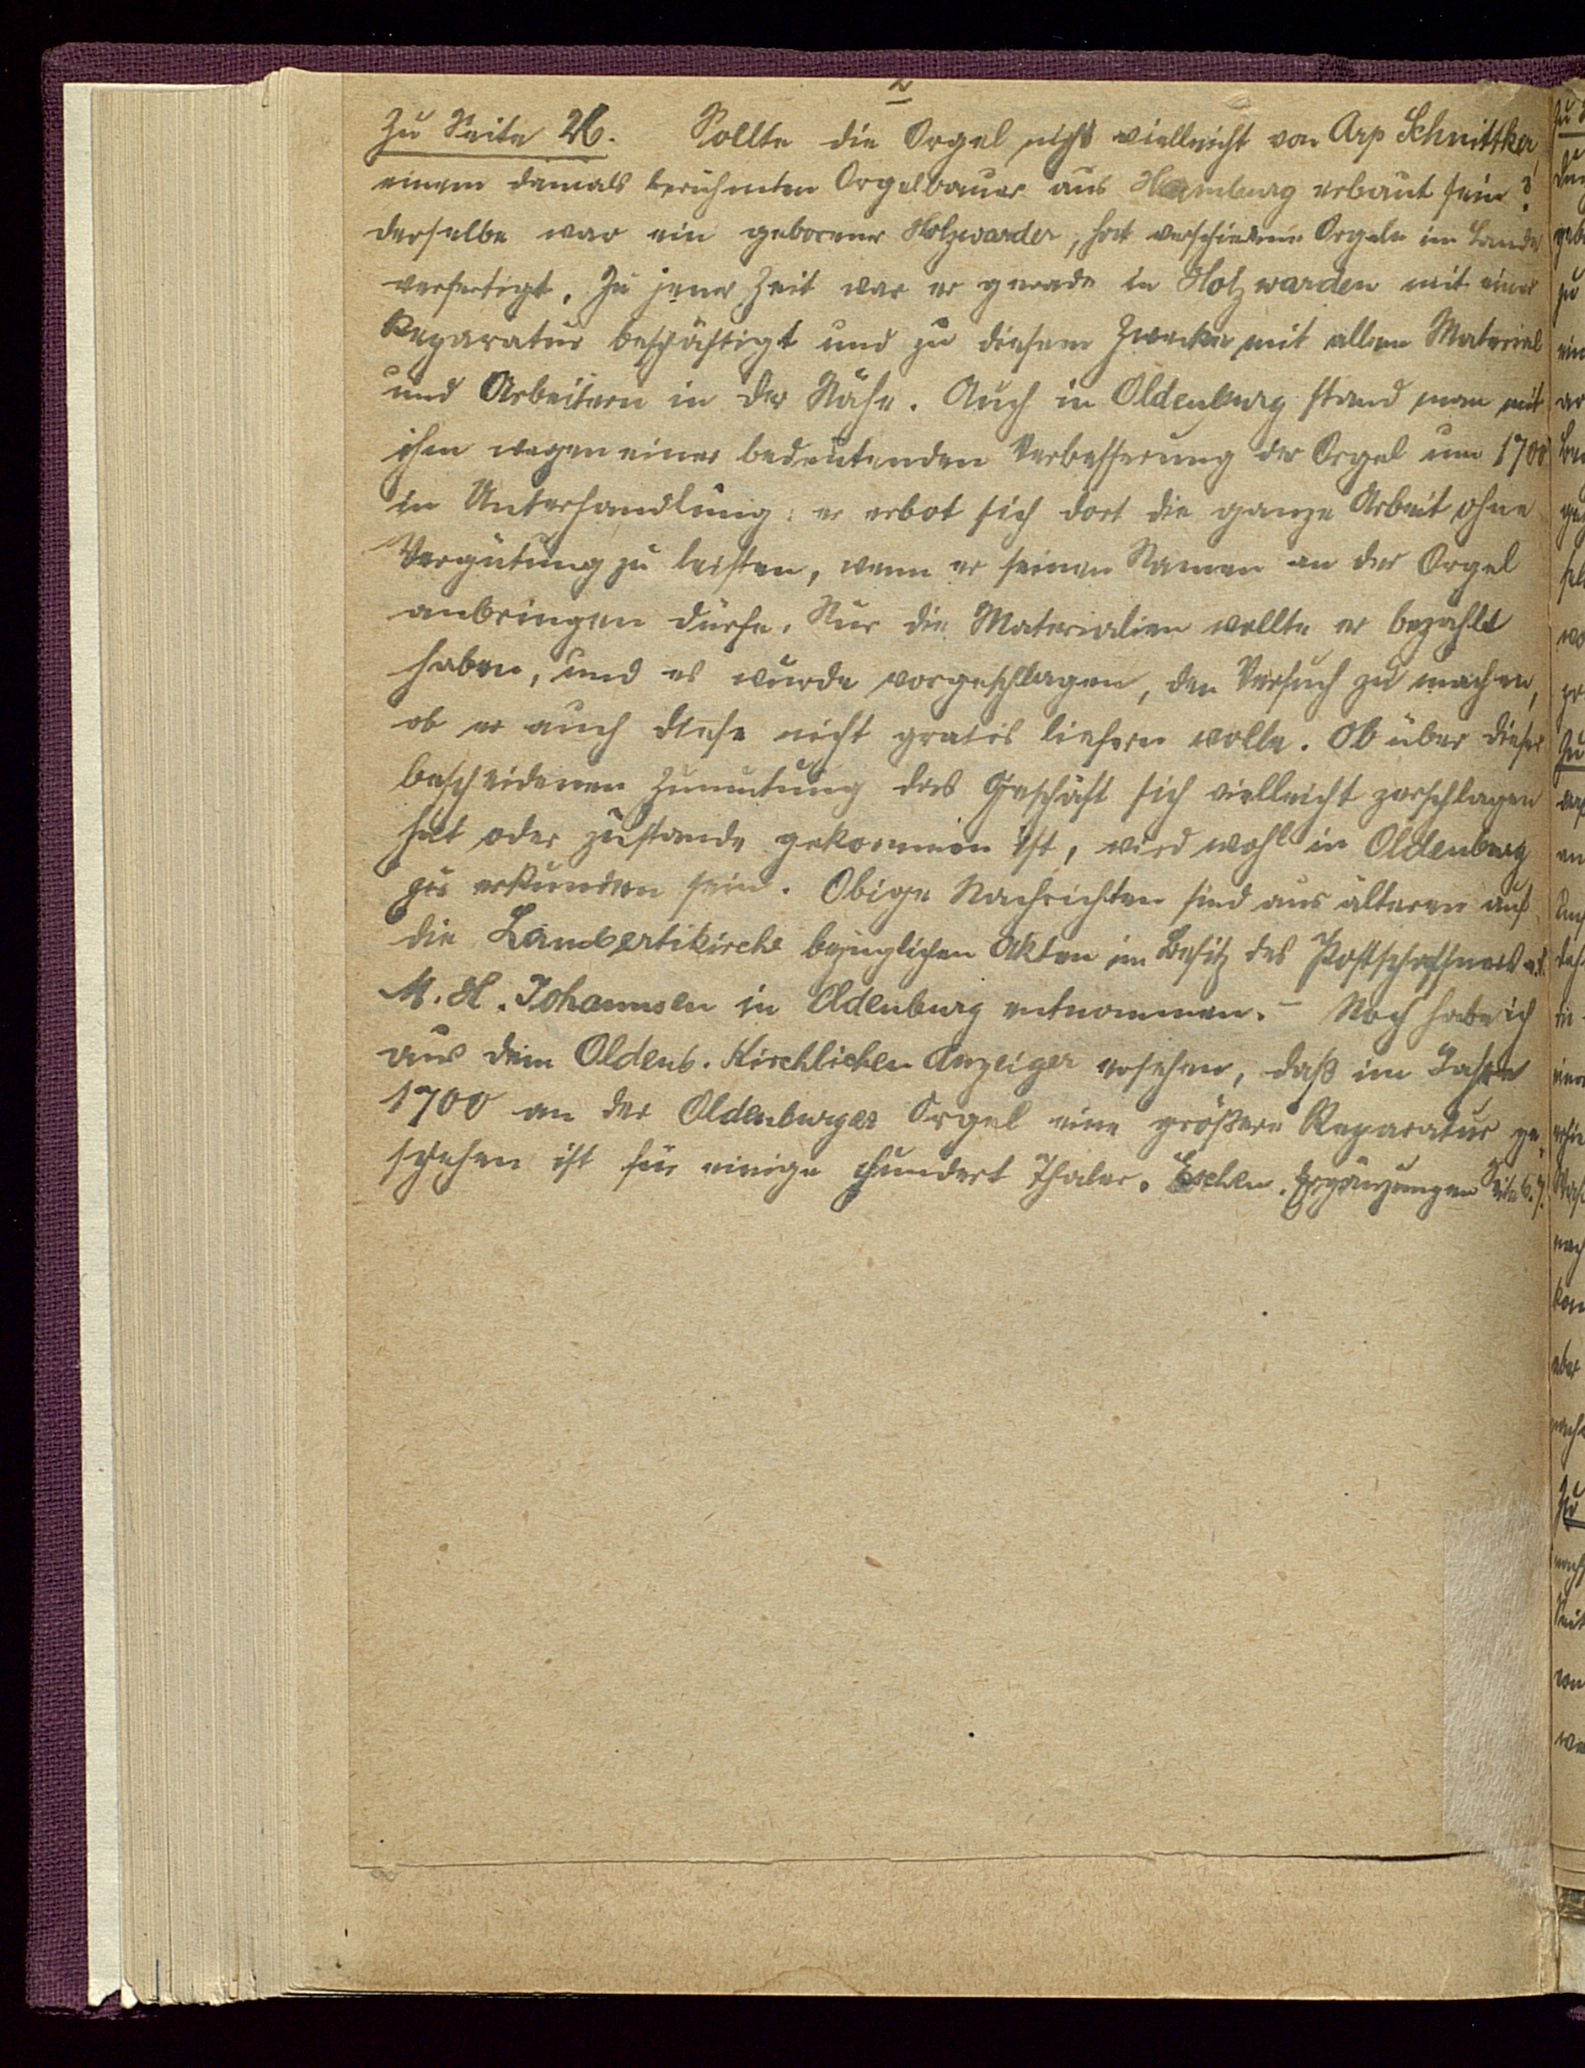 2
Zu Seite 26. Sollte die Orgel nicht vielleicht von Arp Schnittker,
einem damals berühmten Orgelbauer aus Hamburg erbaut sein?
derselbe war ein geborener Holzwarder, hat verschiedene Orgeln im Lande
verfertigt. Zu jener Zeit war er gerade in Holzwarden mit einer
Reparatur beschäftigt und zu diesem Zwecke mit allem Material
und Arbeitern in der Nähe. Auch in Oldenburg stand man mit
ihm wegen einer bedeutenden Verbesserung der Orgel um 1700
in Unterhandlung: er erbot sich dort die ganze Arbeit ohne
Vergütung zu leisten, wenn er seinen Namen an der Orgel
anbringen dürfe. Nur die Materialien wollte er bezahlt
haben, und es wurde vorgeschlagen, den Versuch zu machen,
ob er auch diese nicht gratis liefern wolle. Ob über dieser
bescheidenen Zumutung das Geschäft sich vielleicht zerschlagen
hat oder zustande gekommen ist, wird wohl in Oldenburg
zu erkunden sein. Obige Nachrichten sind aus älteren auf
die Lambertikirche bezüglichen Akten im Besitz des Postschaffners a.D.
M. H. Johannsen in Oldenburg entnommen. – Noch habe ich
aus dem Oldenb. Kirchlichen Anzeiger ersehen, daß im Jahre
1700 an der Oldenburger Orgel eine größere Reparatur ge-
schehen ist für einige hundert Thaler. Eschen. Ergänzungen Seite 6.7.